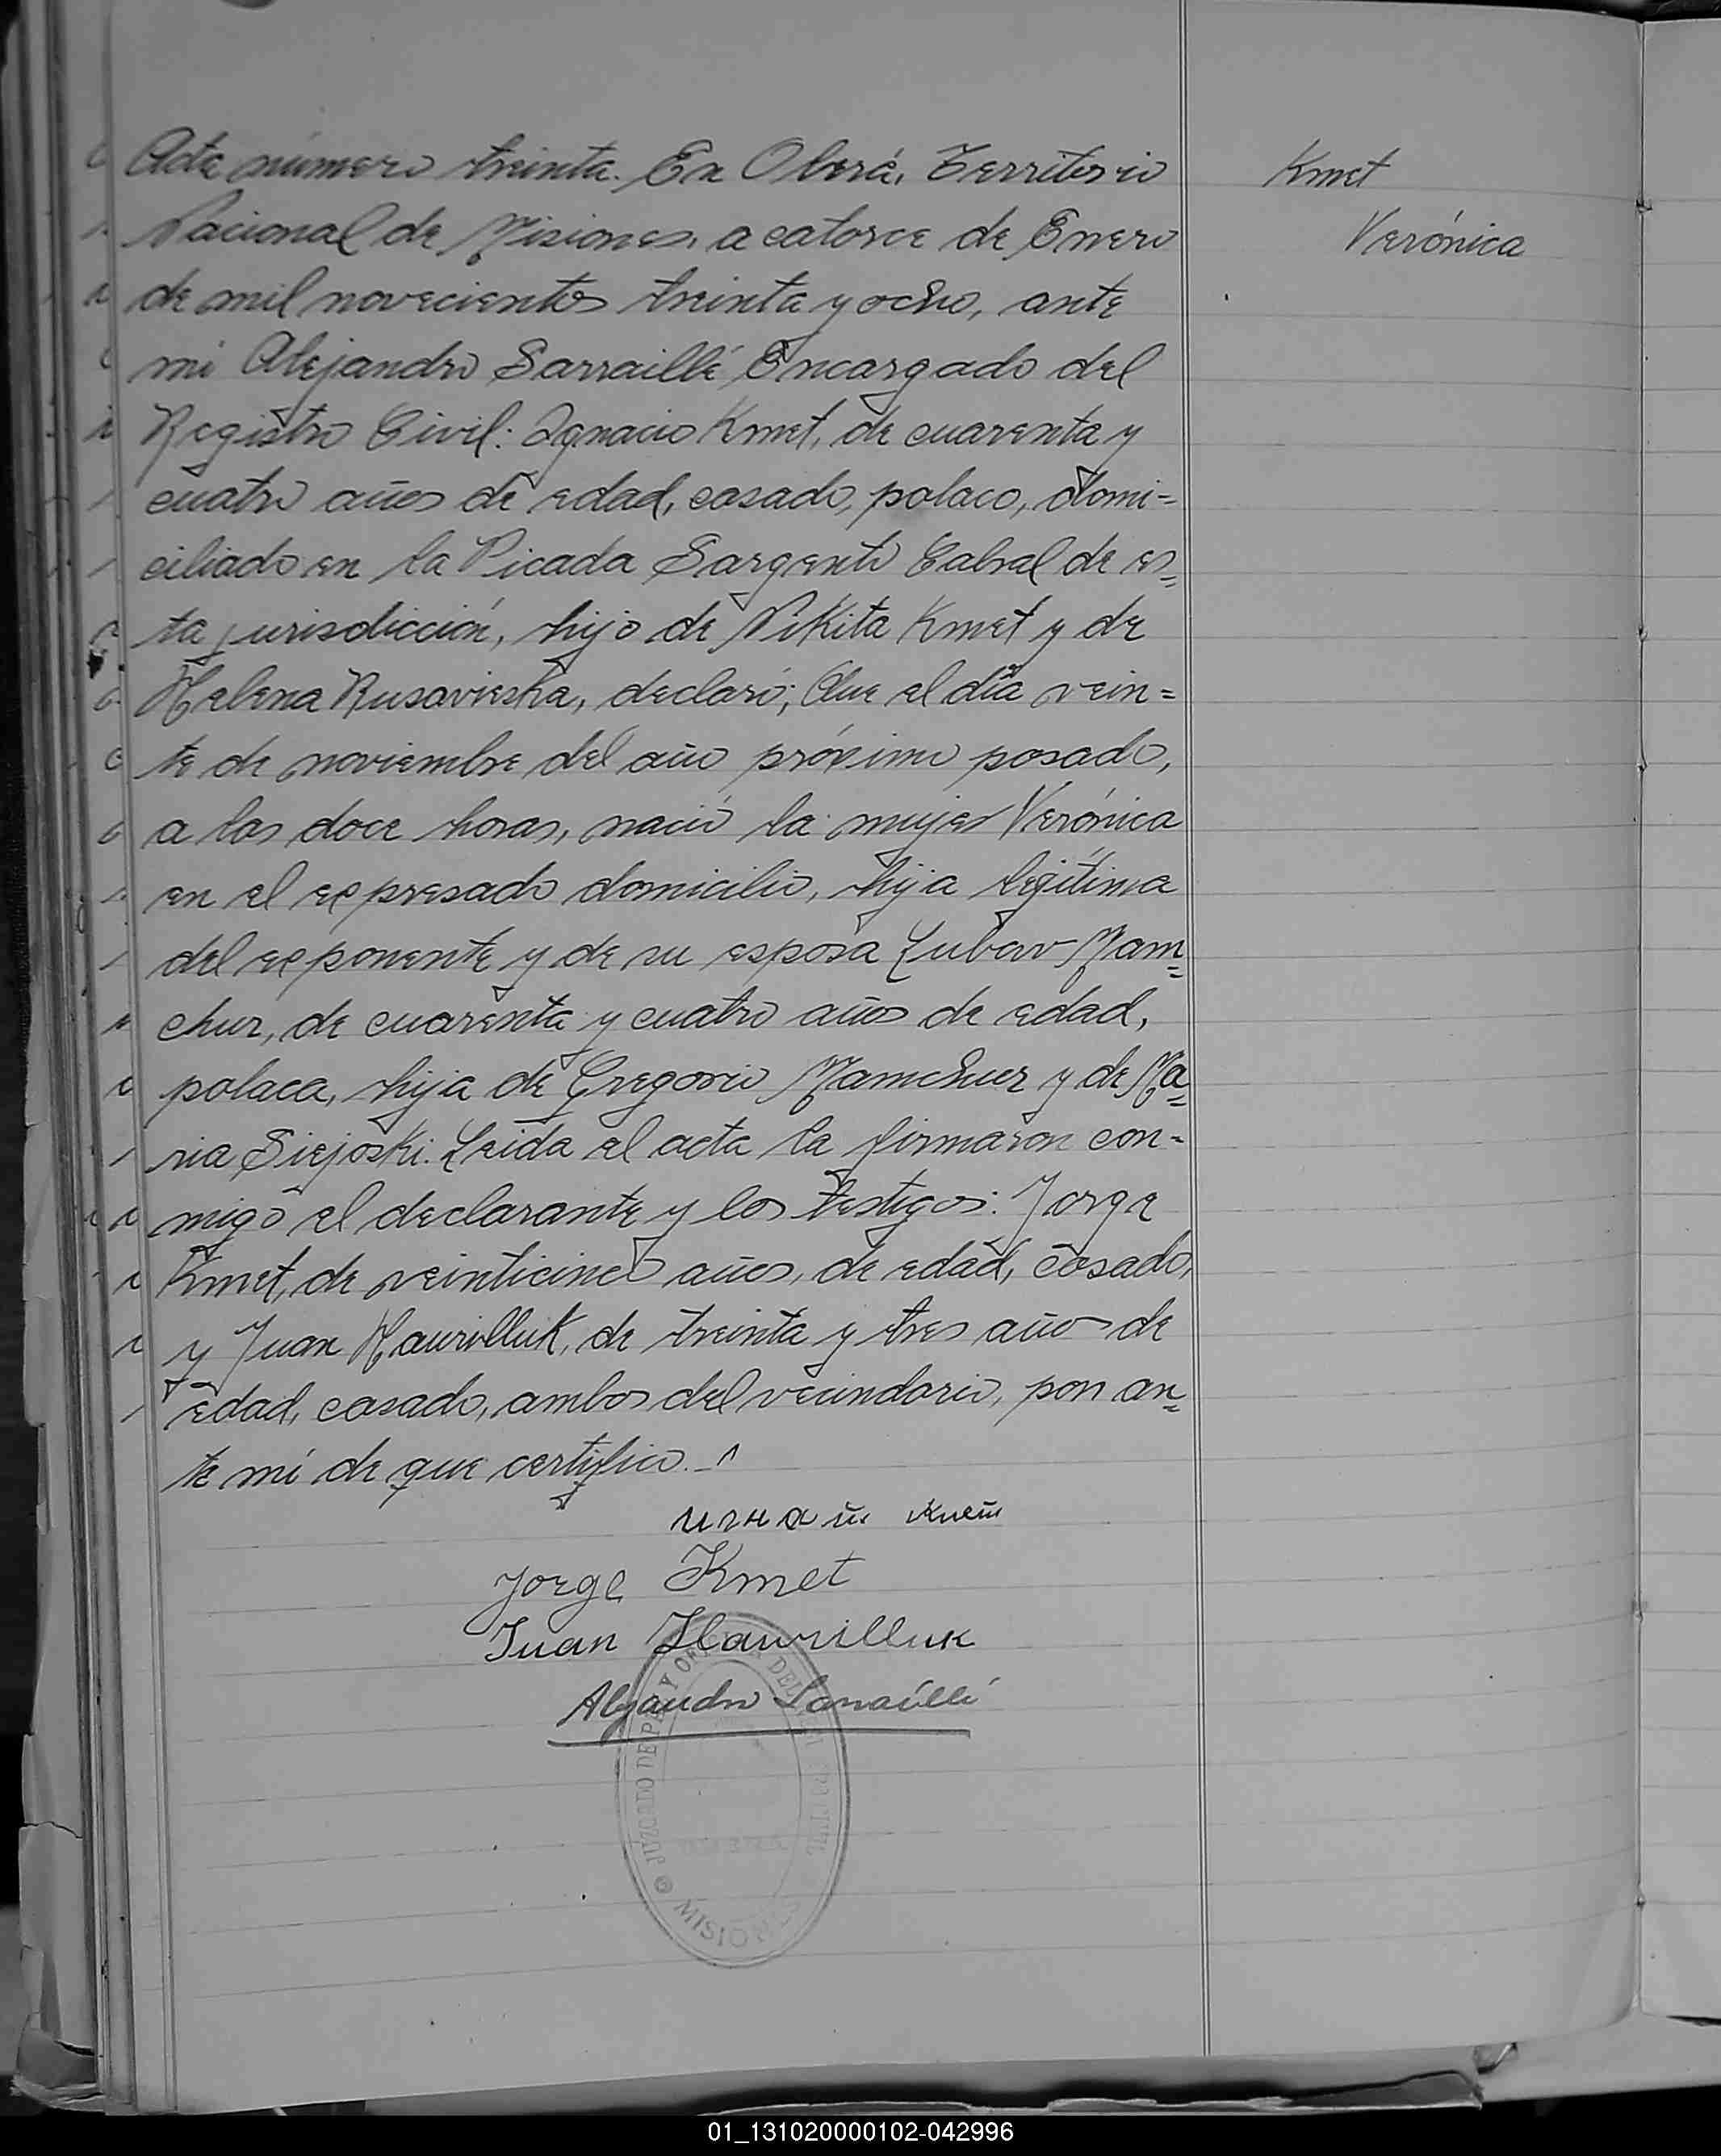 Acta número treinta. En Oberá, Territorio
Nacional de Misiones, a catorce de Enero
de mil novecientos treinta y ocho, ante
mi Alejandro Sarraillé Encargado del
Registro Civil: Ignacio Kmet, de cuarenta y
cuatro años de edad, casado, polaco, domi=
ciliado en la Picada Sargento Cabral de es=
ta jurisdicción, hijo de Nikita Kmet y de
Helena Rusavieska, declaró; Que el día vein=
te de noviembre del año próximo pasado,
a las doce horas, nació la mujer Verónica
en el expresado domicilio, hija legítima
del exponente y de su esposa Lubow Mam=
chur, de cuarenta y cuatro años de edad,
polaca, hija de Gregorio Mamchur y de Ma=
ria Siejoski. Leida el acta la firmaron con=
migo el declarante y los testigos: Jorge
Kmet, de veinticinco años, de edad, casado,
y Juan Hawrilluk, de treinta y tres año de
edad, casado, ambos del vecindario, pon an=
te mí de que certifico.
Kmet
Verónica
игнат кмет
Jorge Kmet
Juan Hawrilluk
Alejandro Sarraillé
JUZGADO DE PAZ Y OFICINA DEL REGISTRO CIVIL
MISIONES
01_131020000102-042996